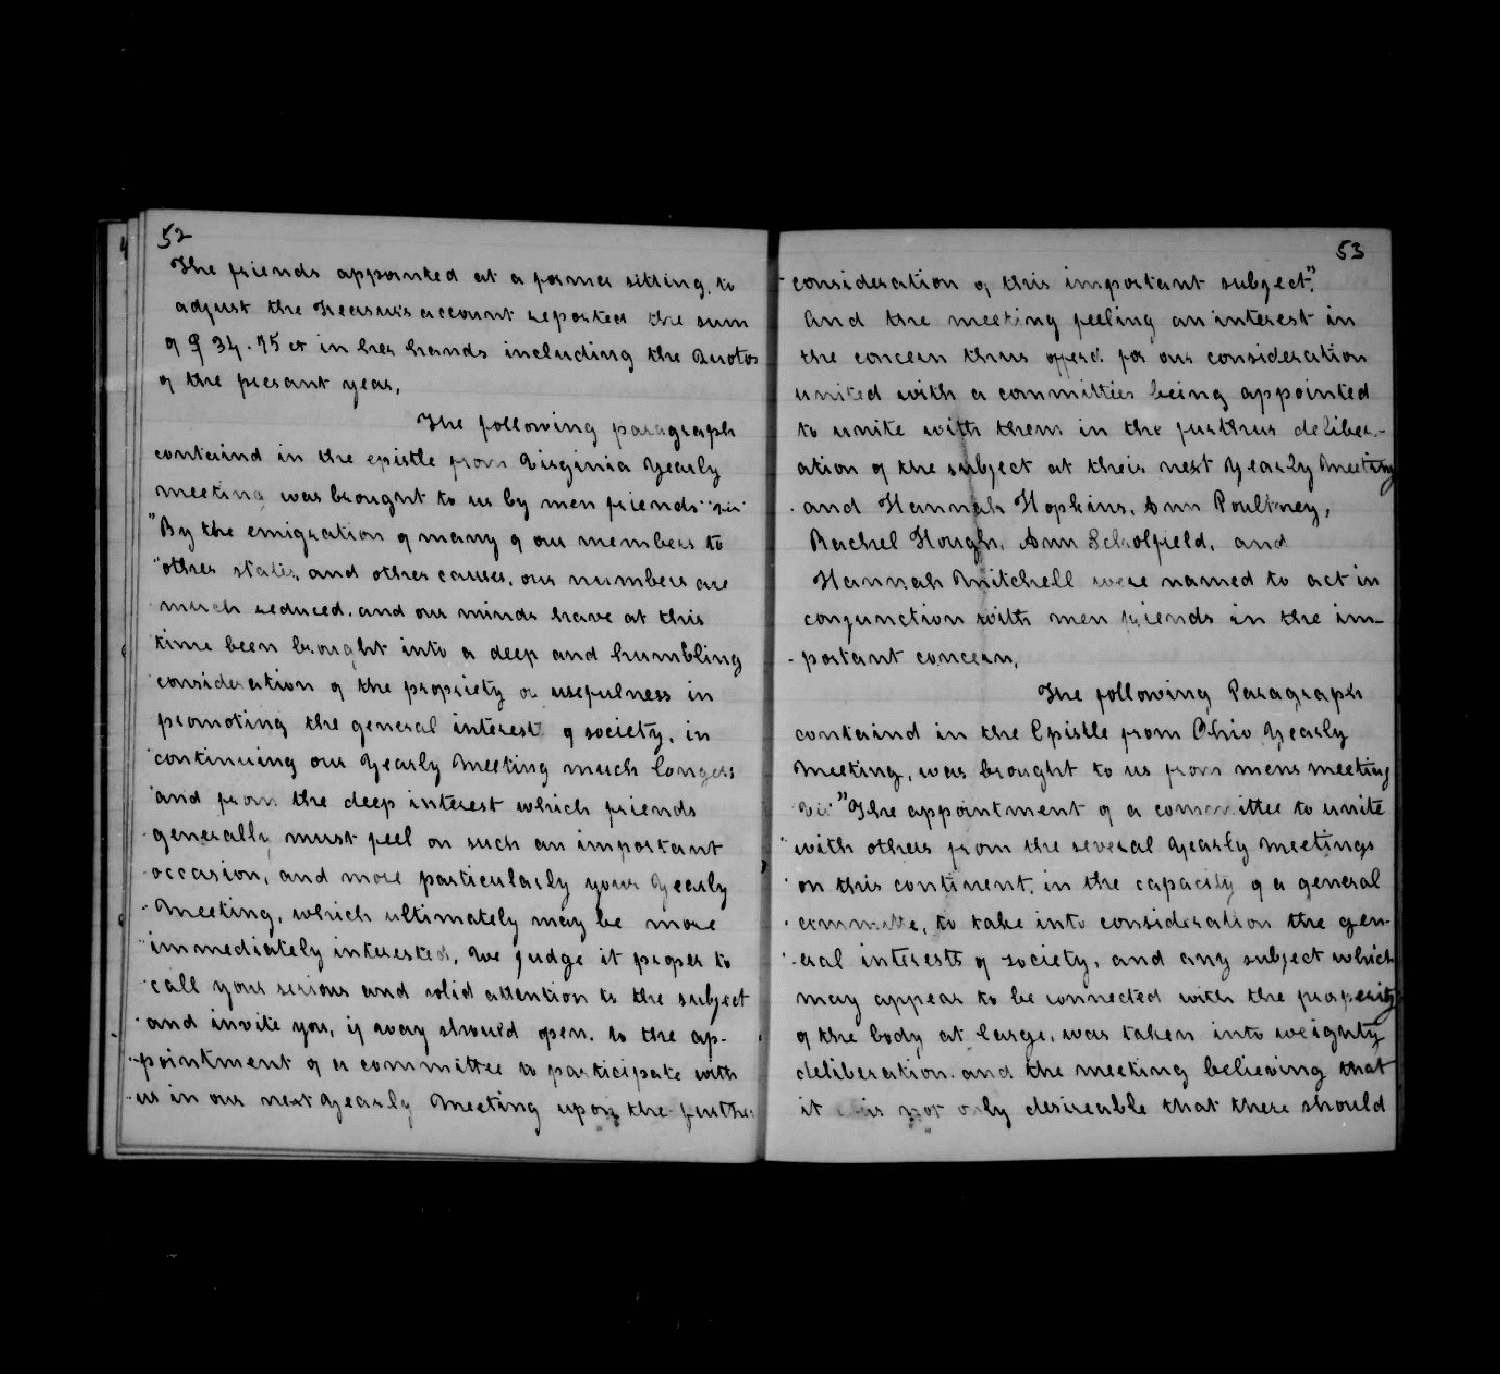 52
The friends appointed at a former sitting, to
adjust the Treasurer's account reported the sum
of $ 34.75 ct in her hands including the Quotas
of the presant year,
The following paragraph
containd in the epistle from Virginia Yearly
meeting was brought to us by men friends "viz"
"By the emigration of many of our members to
"other states, and other causes, our numbers are
much reduced, and our minds have at this
time been brought into a deep and humbling
"consideration of the propriety or usefulness in
promoting the general interest of society, in
"continuing our Yearly Meeting much longer:
"and from the deep interest which friends
generally must feel on such an important
occasion, and more particularly your Yearly
Meeting, which ultimately may be more
"immediately interested, we judge it proper to
"call your serious and solid attention to the subject
"and invite you, if way should open, to the ap-
-pointment of a committee to participate with
us in our next Yearly Meeting upon the further
53
consideration of this important subject."
And the meeting feeling an interest in
the concern thus offerd for our consideration
united with a committies being appointed
to unite with them in the furthur deliber-
ation of the subject at their next Yearly Meeting
and Hannah Hopkins, Ann Poultney,
Rachel Hough, Ann Scholfield, and
Hannah Mitchell were named to act in
conjunction with men friends in the im-
-portant concern,
The following Paragraph
containd in the Epistle from Ohio Yearly
Meeting, was brought to us from mens meeting
viz "The appointment of a committee to unite
"with others from the several Yearly Meetings
on this continent, in the capacity of a general
committe, to take into consideration the gen-
-eral interests of society, and any subject which
may appear to be connected with the properity
of the body at large, was taken into weighty
deliberation and the meeting believing that
it is not only desireable that there should